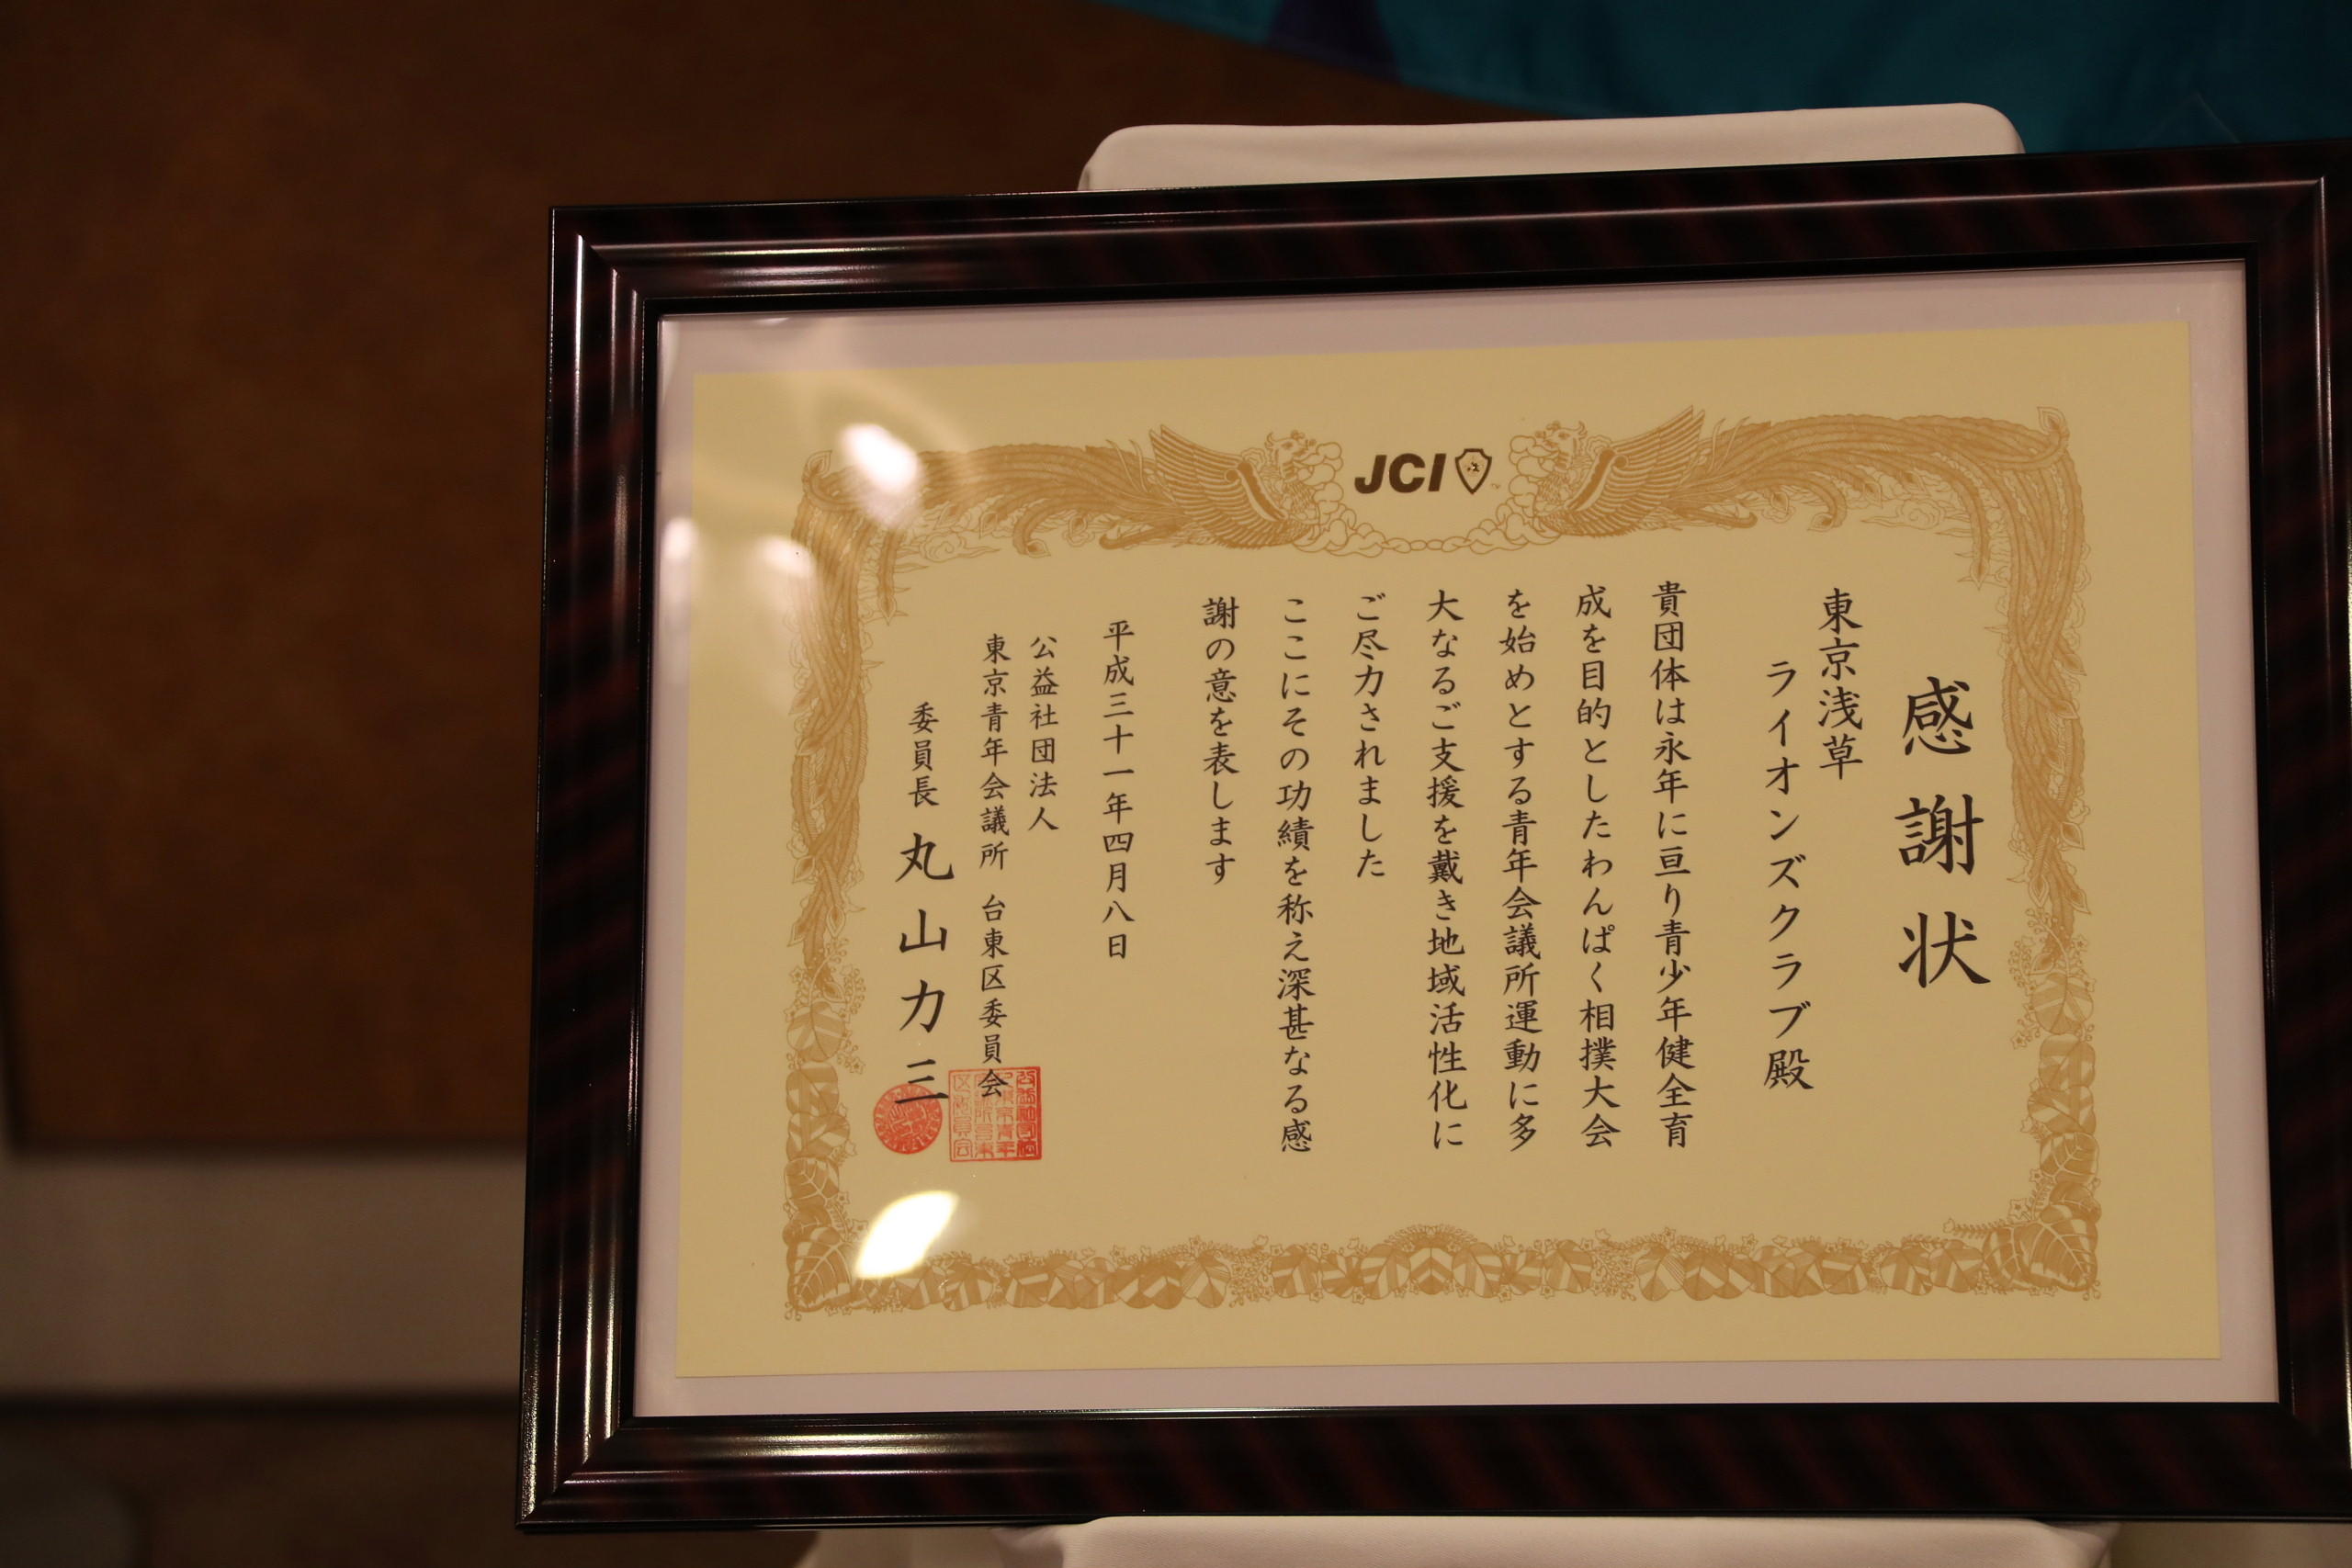 JCI
感謝状
東京浅草
ライオンズクラブ殿
貴団体は永年に亘り青少年健全育
成を目的としたわんぱく相撲大会
を始めとする青年会議所運動に多
大なるご支援を戴き地域活性化に
ご尽力されました
ここにその功績を称え深甚なる感
謝の意を表します
平成三十一年四月八日
公益社団法人
東京青年会議所 台東区委員会
委員長 丸山力三